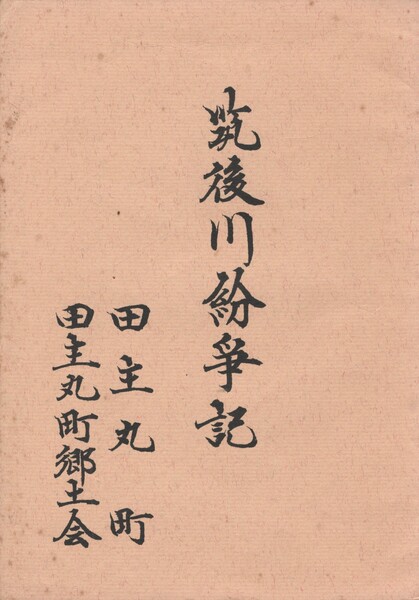 筑後川紛争記
田主丸町
田主丸町郷土会